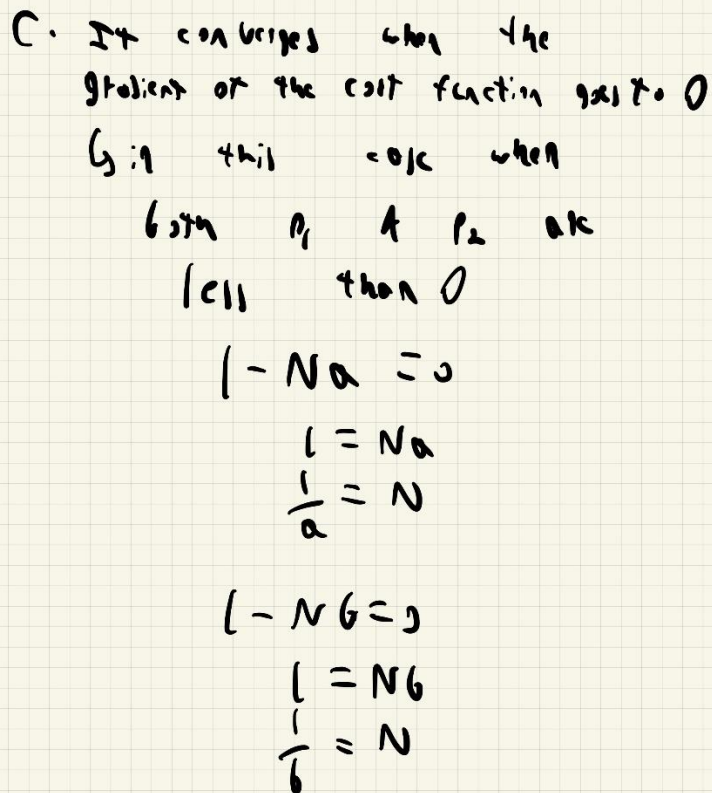 C. It converges when the
gradient of the cost function goes to 0
↳ in this case when
both ρ₁ & ρ₂ are
less than 0
1 - Na = 0
1 = Na
1/a = N
1 - Nb = 0
1 = Nb
1/b = N